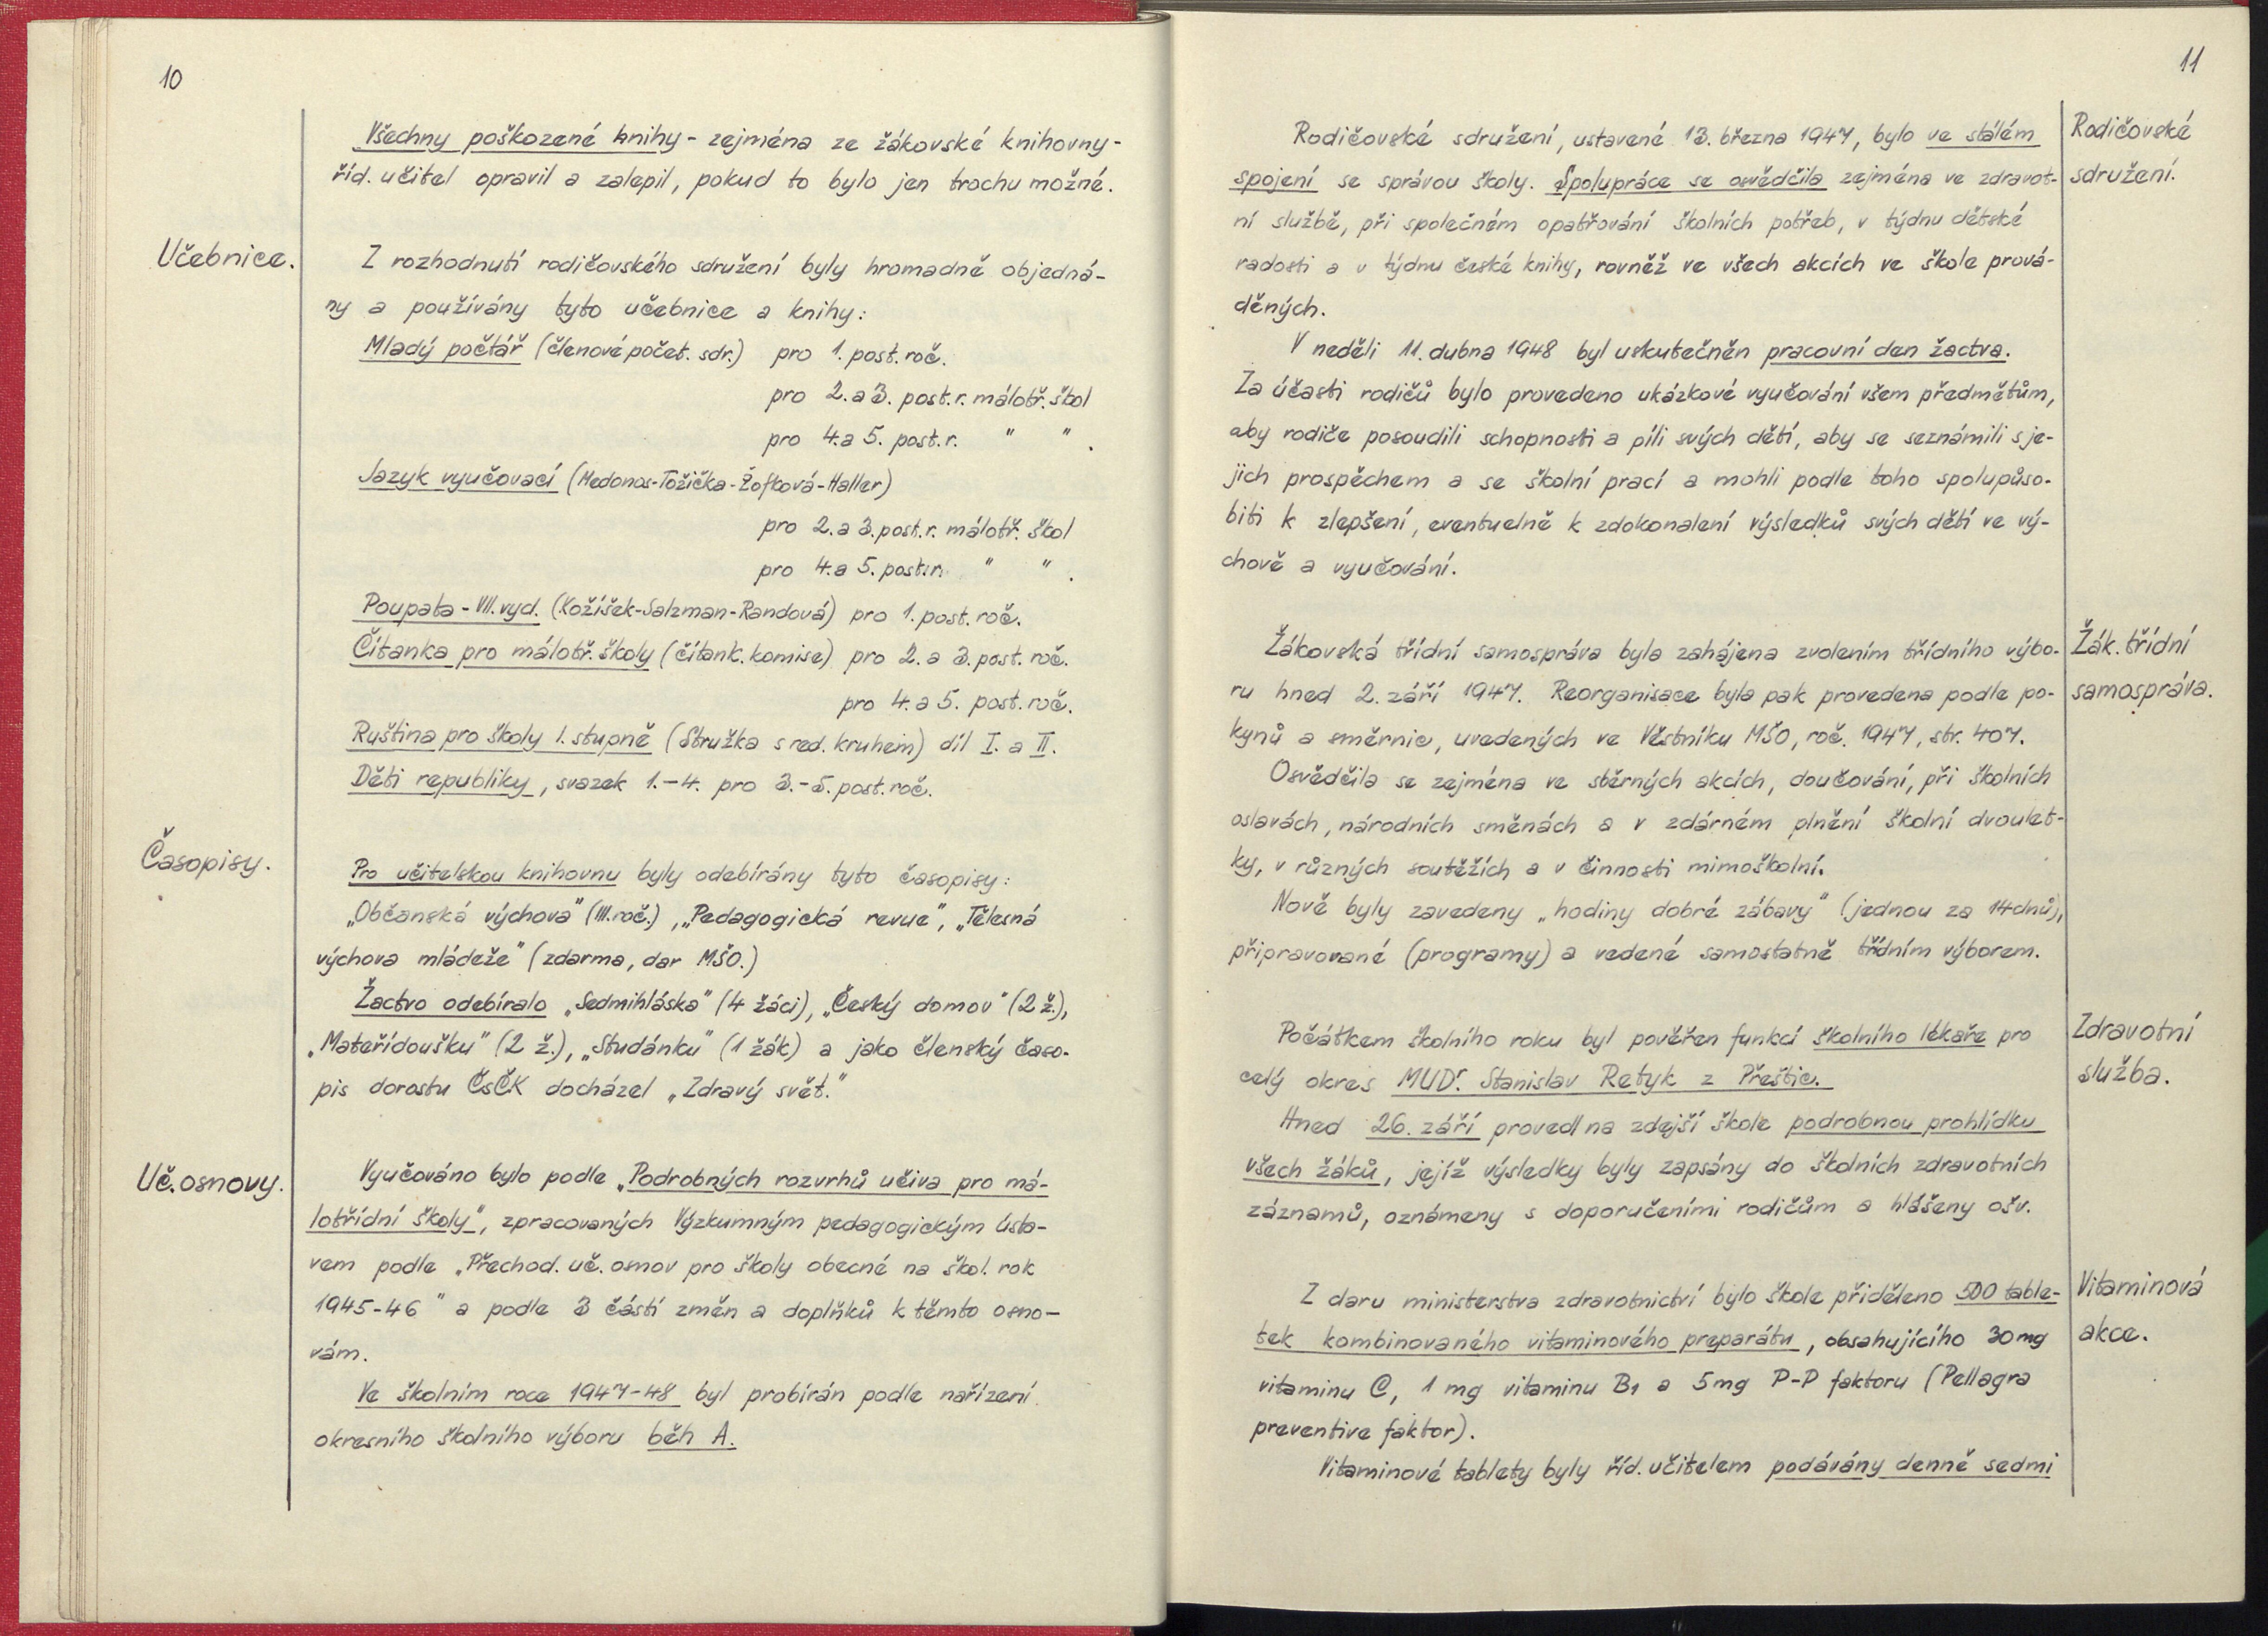 10
Všechny poškozené knihy - zejména ze žákovské knihovny -
říd. učitel opravil a zalepil, pokud to bylo jen trochu možné.
Učebnice.
Z rozhodnutí rodičovského sdružení byly hromadně objedná-
ny a používány tyto učebnice a knihy:
Mladý počtář (členové počet. sdr.) pro 1. post. roč.
pro 2. a 3. post. r. málotř. škol
pro 4. a 5. post. r. " " .
Jazyk vyučovací (Medonos-Tožička-Žofková-Haller)
pro 2. a 3. post. r. málotř. škol
pro 4. a 5. post. r. " " .
Poupata - VII. vyd. (Kožíšek-Salzman-Randová) pro 1. post. roč.
Čítanka pro málotř. školy (čítank. komise) pro 2. a 3. post. roč.
pro 4. a 5. post. roč.
Ruština pro školy 1. stupně (Stružka s red. kruhem) díl I. a II.
Děti republiky, svazek 1.-4. pro 3.-5. post. roč.
Časopisy.
Pro učitelskou knihovnu byly odebírány tyto časopisy:
„Občanská výchova" (III. roč.), „Pedagogická revue", „Tělesná
výchova mládeže" (zdarma, dar MŠO.)
Žactvo odebíralo „Sedmihláska" (4 žáci), „Český domov" (2 ž.),
„Mateřídoušku" (2 ž.), „Studánku" (1 žák) a jako členský časo-
pis dorostu ČsČK docházel „Zdravý svět."
Uč. osnovy.
Vyučováno bylo podle „Podrobných rozvrhů učiva pro má-
lotřídní školy", zpracovaných Výzkumným pedagogickým ústa-
vem podle „Přechod. uč. osnov pro školy obecné na škol. rok
1945-46" a podle 3 částí změn a doplňků k těmto osno-
vám.
Ve školním roce 1947-48 byl probírán podle nařízení
okresního školního výboru běh A.
11
Rodičovské
sdružení.
Rodičovské sdružení, ustavené 13. března 1947, bylo ve stálém
spojení se správou školy. Spolupráce se osvědčila zejména ve zdravot-
ní službě, při společném opatřování školních potřeb, v týdnu dětské
radosti a v týdnu české knihy, rovněž ve všech akcích ve škole prová-
děných.
V neděli 11. dubna 1948 byl uskutečněn pracovní den žactva.
Za účasti rodičů bylo provedeno ukázkové vyučování všem předmětům,
aby rodiče posoudili schopnosti a píli svých dětí, aby se seznámili s je-
jich prospěchem a se školní prací a mohli podle toho spolupůso-
biti k zlepšení, eventuelně k zdokonalení výsledků svých dětí ve vý-
chově a vyučování.
Žák. třídní
samospráva.
Žákovská třídní samospráva byla zahájena zvolením třídního výbo-
ru hned 2. září 1947. Reorganisace byla pak provedena podle po-
kynů a směrnic, uvedených ve Věstníku MŠO, roč. 1947, str. 407.
Osvědčila se zejména ve sběrných akcích, doučování, při školních
oslavách, národních směnách a v zdárném plnění školní dvoulet-
ky, v různých soutěžích a v činnosti mimoškolní.
Nově byly zavedeny „hodiny dobré zábavy" (jednou za 14 dnů),
připravované (programy) a vedené samostatně třídním výborem.
Zdravotní
služba.
Počátkem školního roku byl pověřen funkcí školního lékaře pro
celý okres MUDr. Stanislav Retyk z Přeštic.
Hned 26. září provedl na zdejší škole podrobnou prohlídku
všech žáků, jejíž výsledky byly zapsány do školních zdravotních
záznamů, oznámeny s doporučeními rodičům a hlášeny ošv.
Vitaminová
akce.
Z daru ministerstva zdravotnictví bylo škole přiděleno 500 table-
tek kombinovaného vitaminového preparátu, obsahujícího 30 mg
vitaminu C, 1 mg vitaminu B1 a 5 mg P-P faktoru (Pellagra
preventive faktor).
Vitaminové tablety byly říd. učitelem podávány denně sedmi